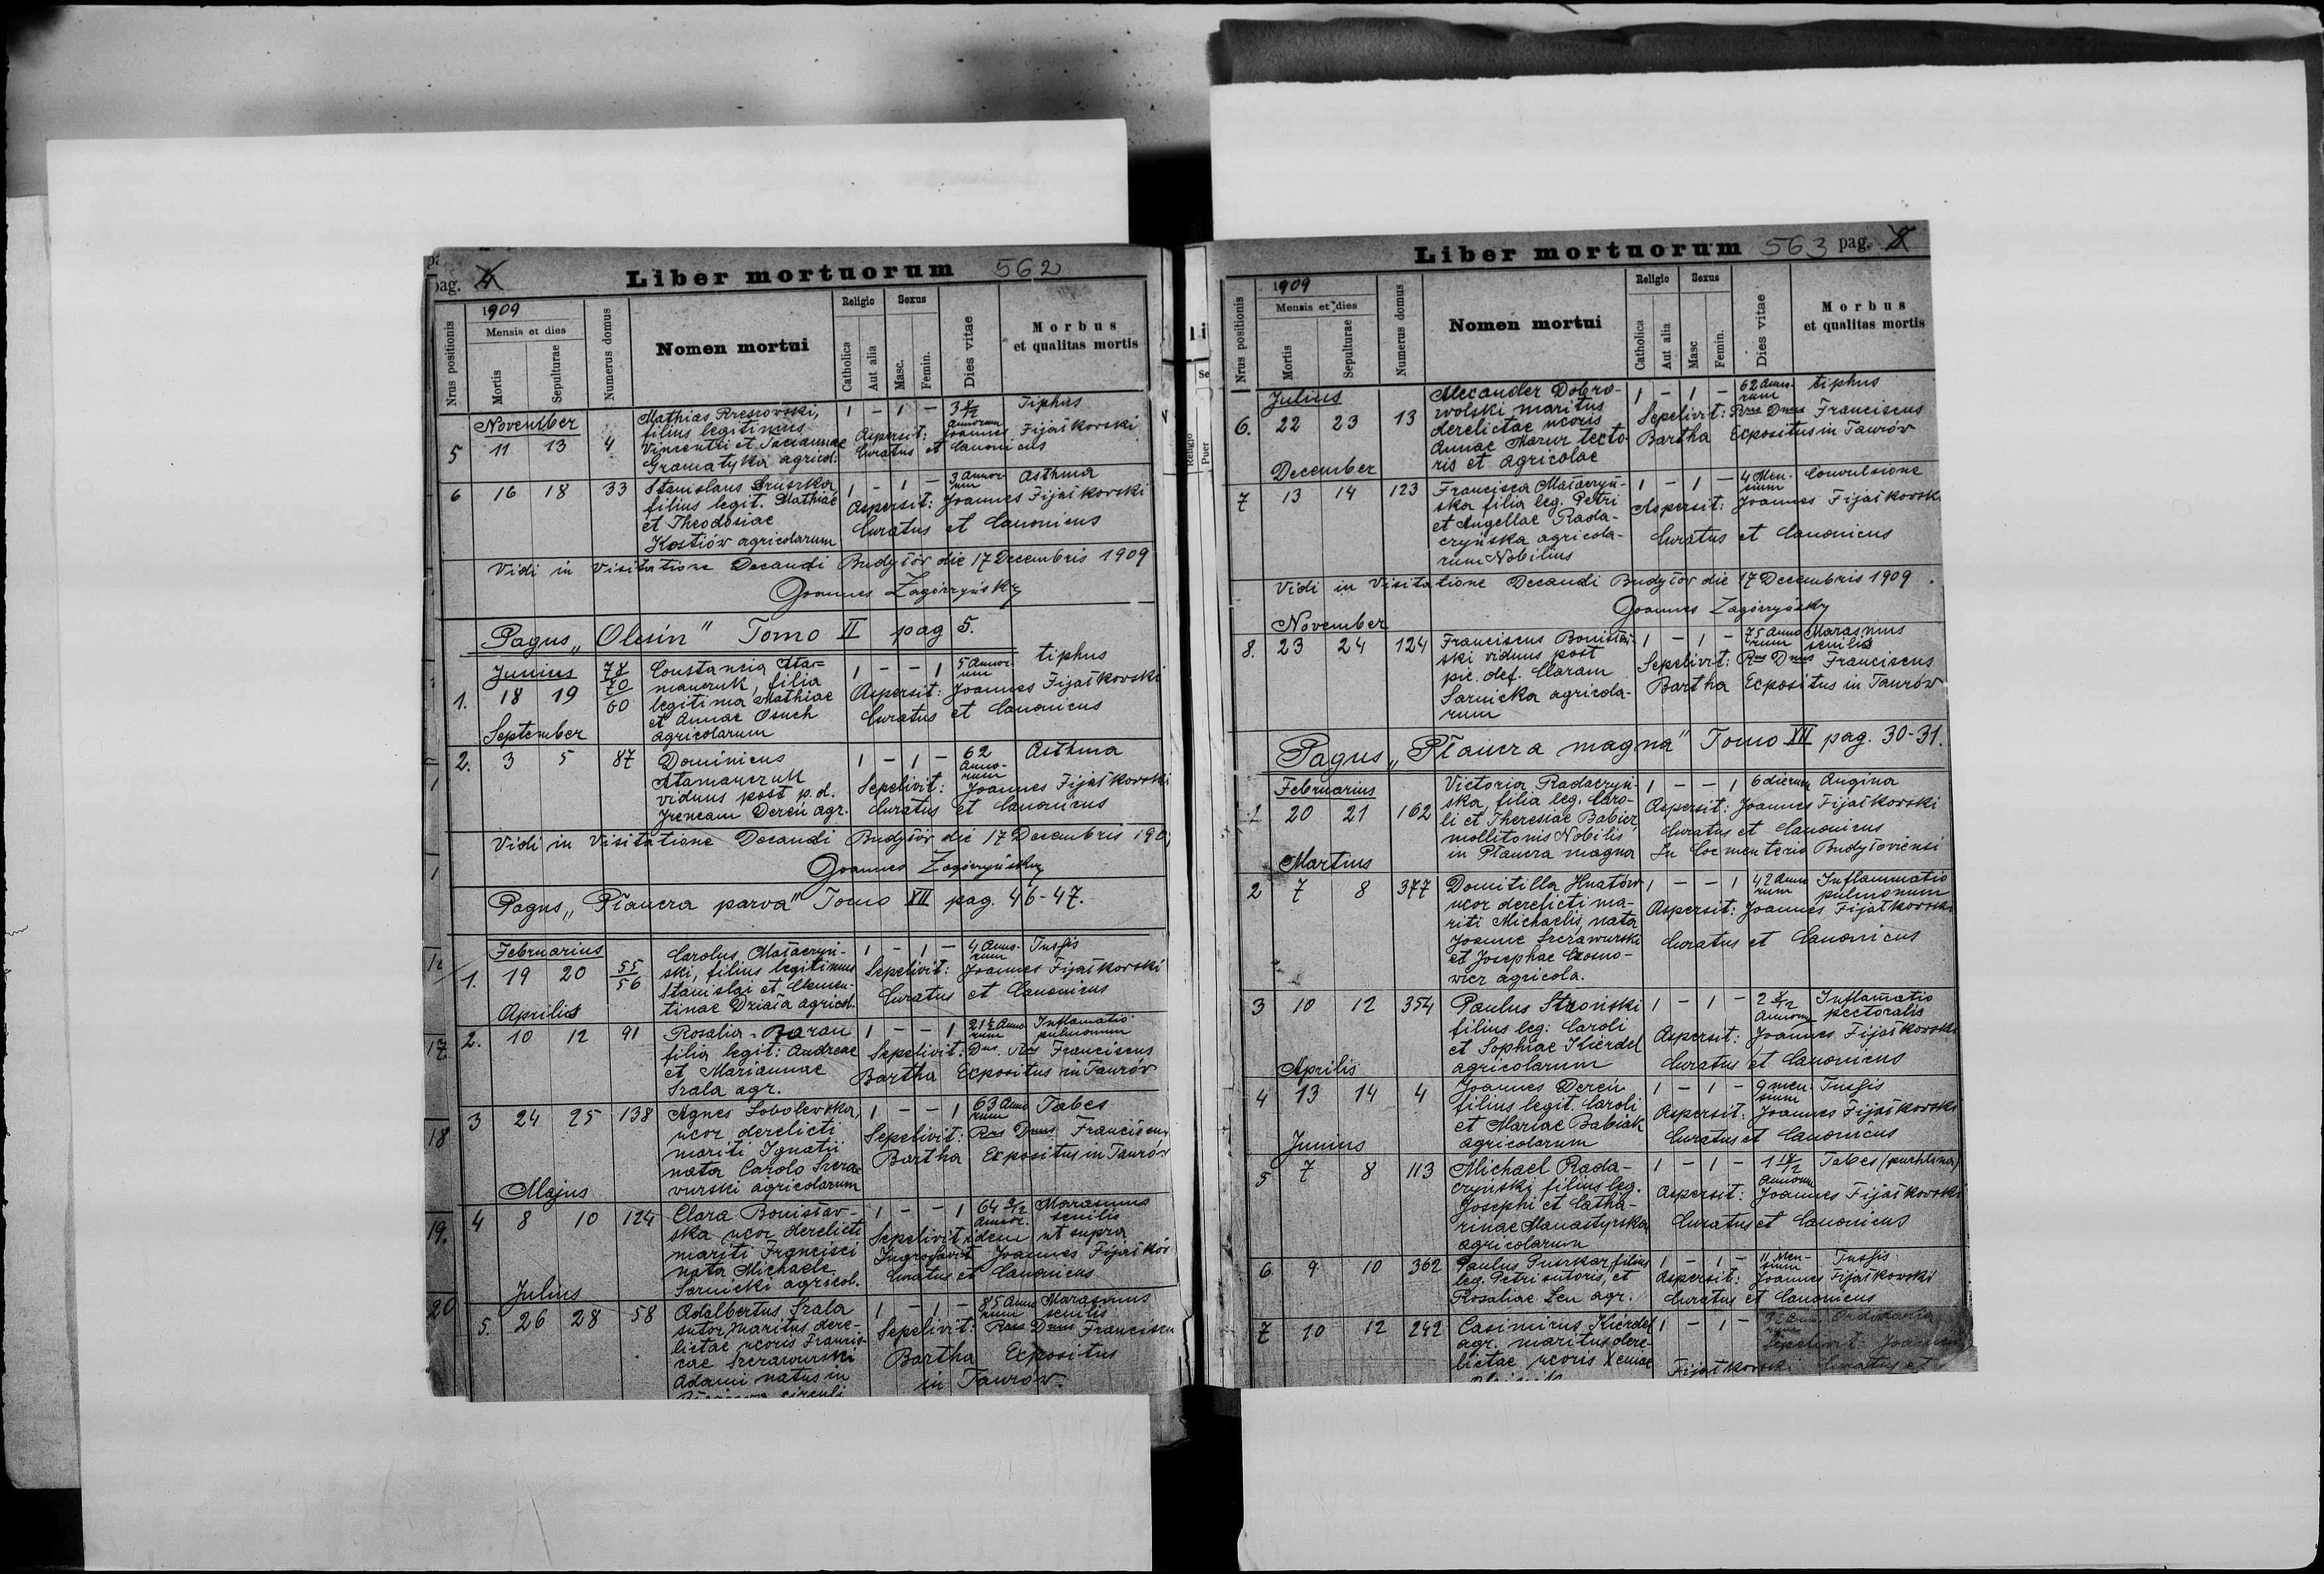 pag. 4
Liber mortuorum 562
Nrus positionis
1909
Mensis et dies
Mortis
Sepulturae
Numerus domus
Nomen mortui
Religio
Catholica
Aut alia
Sexus
Masc.
Femin.
Dies vitae
Morbus
et qualitas mortis
November
5 11 13 4
Mathias Rzeszowski,
filius legitimus
Vincentii et
Gramatyka agricol.
1 - 1 - 3 8/12 Annorum Tiphus
Aspersit: Joannes Fijałkovski
Curatus et Canonicus
6 16 18 33
Stanislaus Gruszka
filius legit. Mathiae
et Theodosiae
Kostiów agricolarum
1 - 1 - 3 Annorum Asthma
Aspersit: Joannes Fijałkovski
Curatus et Canonicus
Vidi in Visitatione Decanali Budyłów die 17 Decembris 1909
Joannes Zagórzyński
Pagus „Olesin" Tomo II pag 5.
Junius
1. 18 19 78/70/60
Constancia Ata=
manczuk, filia
legitima Mathiae
et Annae Osuch
agricolarum
1 - - 1 5 Annorum tiphus
Aspersit: Joannes Fijałkovski
Curatus et Canonicus
September
2. 3 5 87
Dominicus
Atamanczuk
viduus post p.d.
Ireneam Dereń agr.
1 - 1 - 62 Annorum Asthma
Sepelivit: Joannes Fijałkovski
Curatus et Canonicus
Vidi in Visitatione Decanali Budyłów die 17 Decembris 190
Joannes Zagórzyński
Pagus „Płaucza parva" Tomo XII pag. 46-47.
Februarius
1. 19 20 55/56
Carolus Małaczyń-
ski, filius legitimus
Stanislai et Clemen-
tinae Działa agricol.
1 - 1 - 4 Annorum Tussis
Sepelivit: Joannes Fijałkovski
Curatus et Canonicus
Aprilis
2. 10 12 91
Rosalia Baran
filia legit: Andreae
et Mariannae
Szala agr.
1 - - 1 21½ Annorum Inflamatio pulmonum
Sepelivit: Dns. Rus Franciscus
Bartha Expositus in Taurów
3 24 25 138
Agnes Sobolewska,
uxor derelicti
mariti Ignatii
nata Carolo Szcza-
wurski agricolarum
1 - - 1 63 Annorum Tabes
Sepelivit: Rus Dnus Franciscus
Bartha Expositus in Taurów
Majus
4 8 10 124
Clara Bonisław-
ska uxor derelicti
mariti Francisci
nata Michaele
Sarnicki agricol.
1 - - 1 64 9/12 Annor. Marasmus senilis
Sepelivit idem ut supra
Ingrossavit Joannes Fijałkov
Curatus et Canonicus
Julius
5. 26 28 58
Adalbertus Szala
sutor, maritus dere-
lictae uxoris Francis-
cae Szczawurski
Adami natus in
circuli
1 - 1 - 85 Annorum Marasmus senilis
Sepelivit: Rus Dnus Franciscu
Bartha Expositus
in Taurów.
Liber mortuorum 563 pag.
Nrus positionis
1909
Mensis et dies
Mortis
Sepulturae
Numerus domus
Nomen mortui
Religio
Catholica
Aut alia
Sexus
Masc
Femin.
Dies vitae
Morbus
et qualitas mortis
Julius
6. 22 23 13
Alexander Dobro-
wolski maritus
derelictae uxoris
Annae Mazur tecto-
ris et agricolae
1 - 1 - 62 Annorum tiphus
Sepelivit: Rus Dnus Franciscus
Bartha Expositus in Taurów
December
7 13 14 123
Francisca Małaczyń-
ska filia leg. Petri
et Angellae Rada-
czyńska agricola-
rum Nobilius
1 - 1 - 4 Mensium Convulsione
Aspersit: Joannes Fijałkovsk
Curatus et Canonicus
Vidi in Visitatione Decanali Budyłów die 17 Decembris 1909.
Joannes Zagórzyński
November
8. 23 24 124
Franciscus Bonisław-
ski viduus post
pie. def. Claram
Sarnicka agricola-
rum
1 - 1 - 75 Annorum Marasmus senilis
Sepelivit: Rus Dnus Franciscus
Bartha Expositus in Taurów
Pagus „Płaucza magna" Tomo XII pag. 30-31.
Februarius
1 20 21 162
Victoria Radaczyń-
ska, filia leg. Caro-
li et Theresiae Babicz
mollitonis Nobilis
in Płaucza magna
1 - - 1 6 dierum Angina
Aspersit: Joannes Fijałkovski
Curatus et Canonicus
In Coementerio Budyłoviensi
Martius
2 7 8 377
Domitilla Hnatów
uxor derelicti ma-
riti Michaelis, nata
Joanne Szczawurski
et Josephae Czosno-
wicz agricola.
1 - - 1 42 Annorum Inflammatio pulmonum
Aspersit: Joannes Fijałkovski
Curatus et Canonicus
3 10 12 354
Paulus Stroński
filius leg: Caroli
et Sophiae Kierdel
agricolarum
1 - 1 - 2 8/12 Annorum Inflamatio pectoralis
Aspersit: Joannes Fijałkovski
Curatus et Canonicus
Aprilis
4 13 14 4
Joannes Dereń
filius legit. Caroli
et Mariae Babiak
agricolarum
1 - 1 - 9 mensium Tussis
Aspersit: Joannes Fijałkovski
Curatus et Canonicus
Junius
5 7 8 113
Michael Rada-
czyński filius leg.
Josephi et Catha-
rinae Manastyrska
agricolarum
1 - 1 - 1 Annorum Tabes (puchlina)
Aspersit: Joannes Fijałkovski
Curatus et Canonicus
6 9 10 362
Paulus Puszkar, filius
leg. Petri sutoris, et
Rosaliae Leu agr.
1 - 1 - 11 Mensium Tussis
Aspersit: Joannes Fijałkovski
Curatus et Canonicus
7 10 12 242
Casimirus Kierdel
agr. maritus dere-
lictae uxoris Xeniae
1 - 1 -
Sepelivit: Joannes
Fijałkovski Curatus et